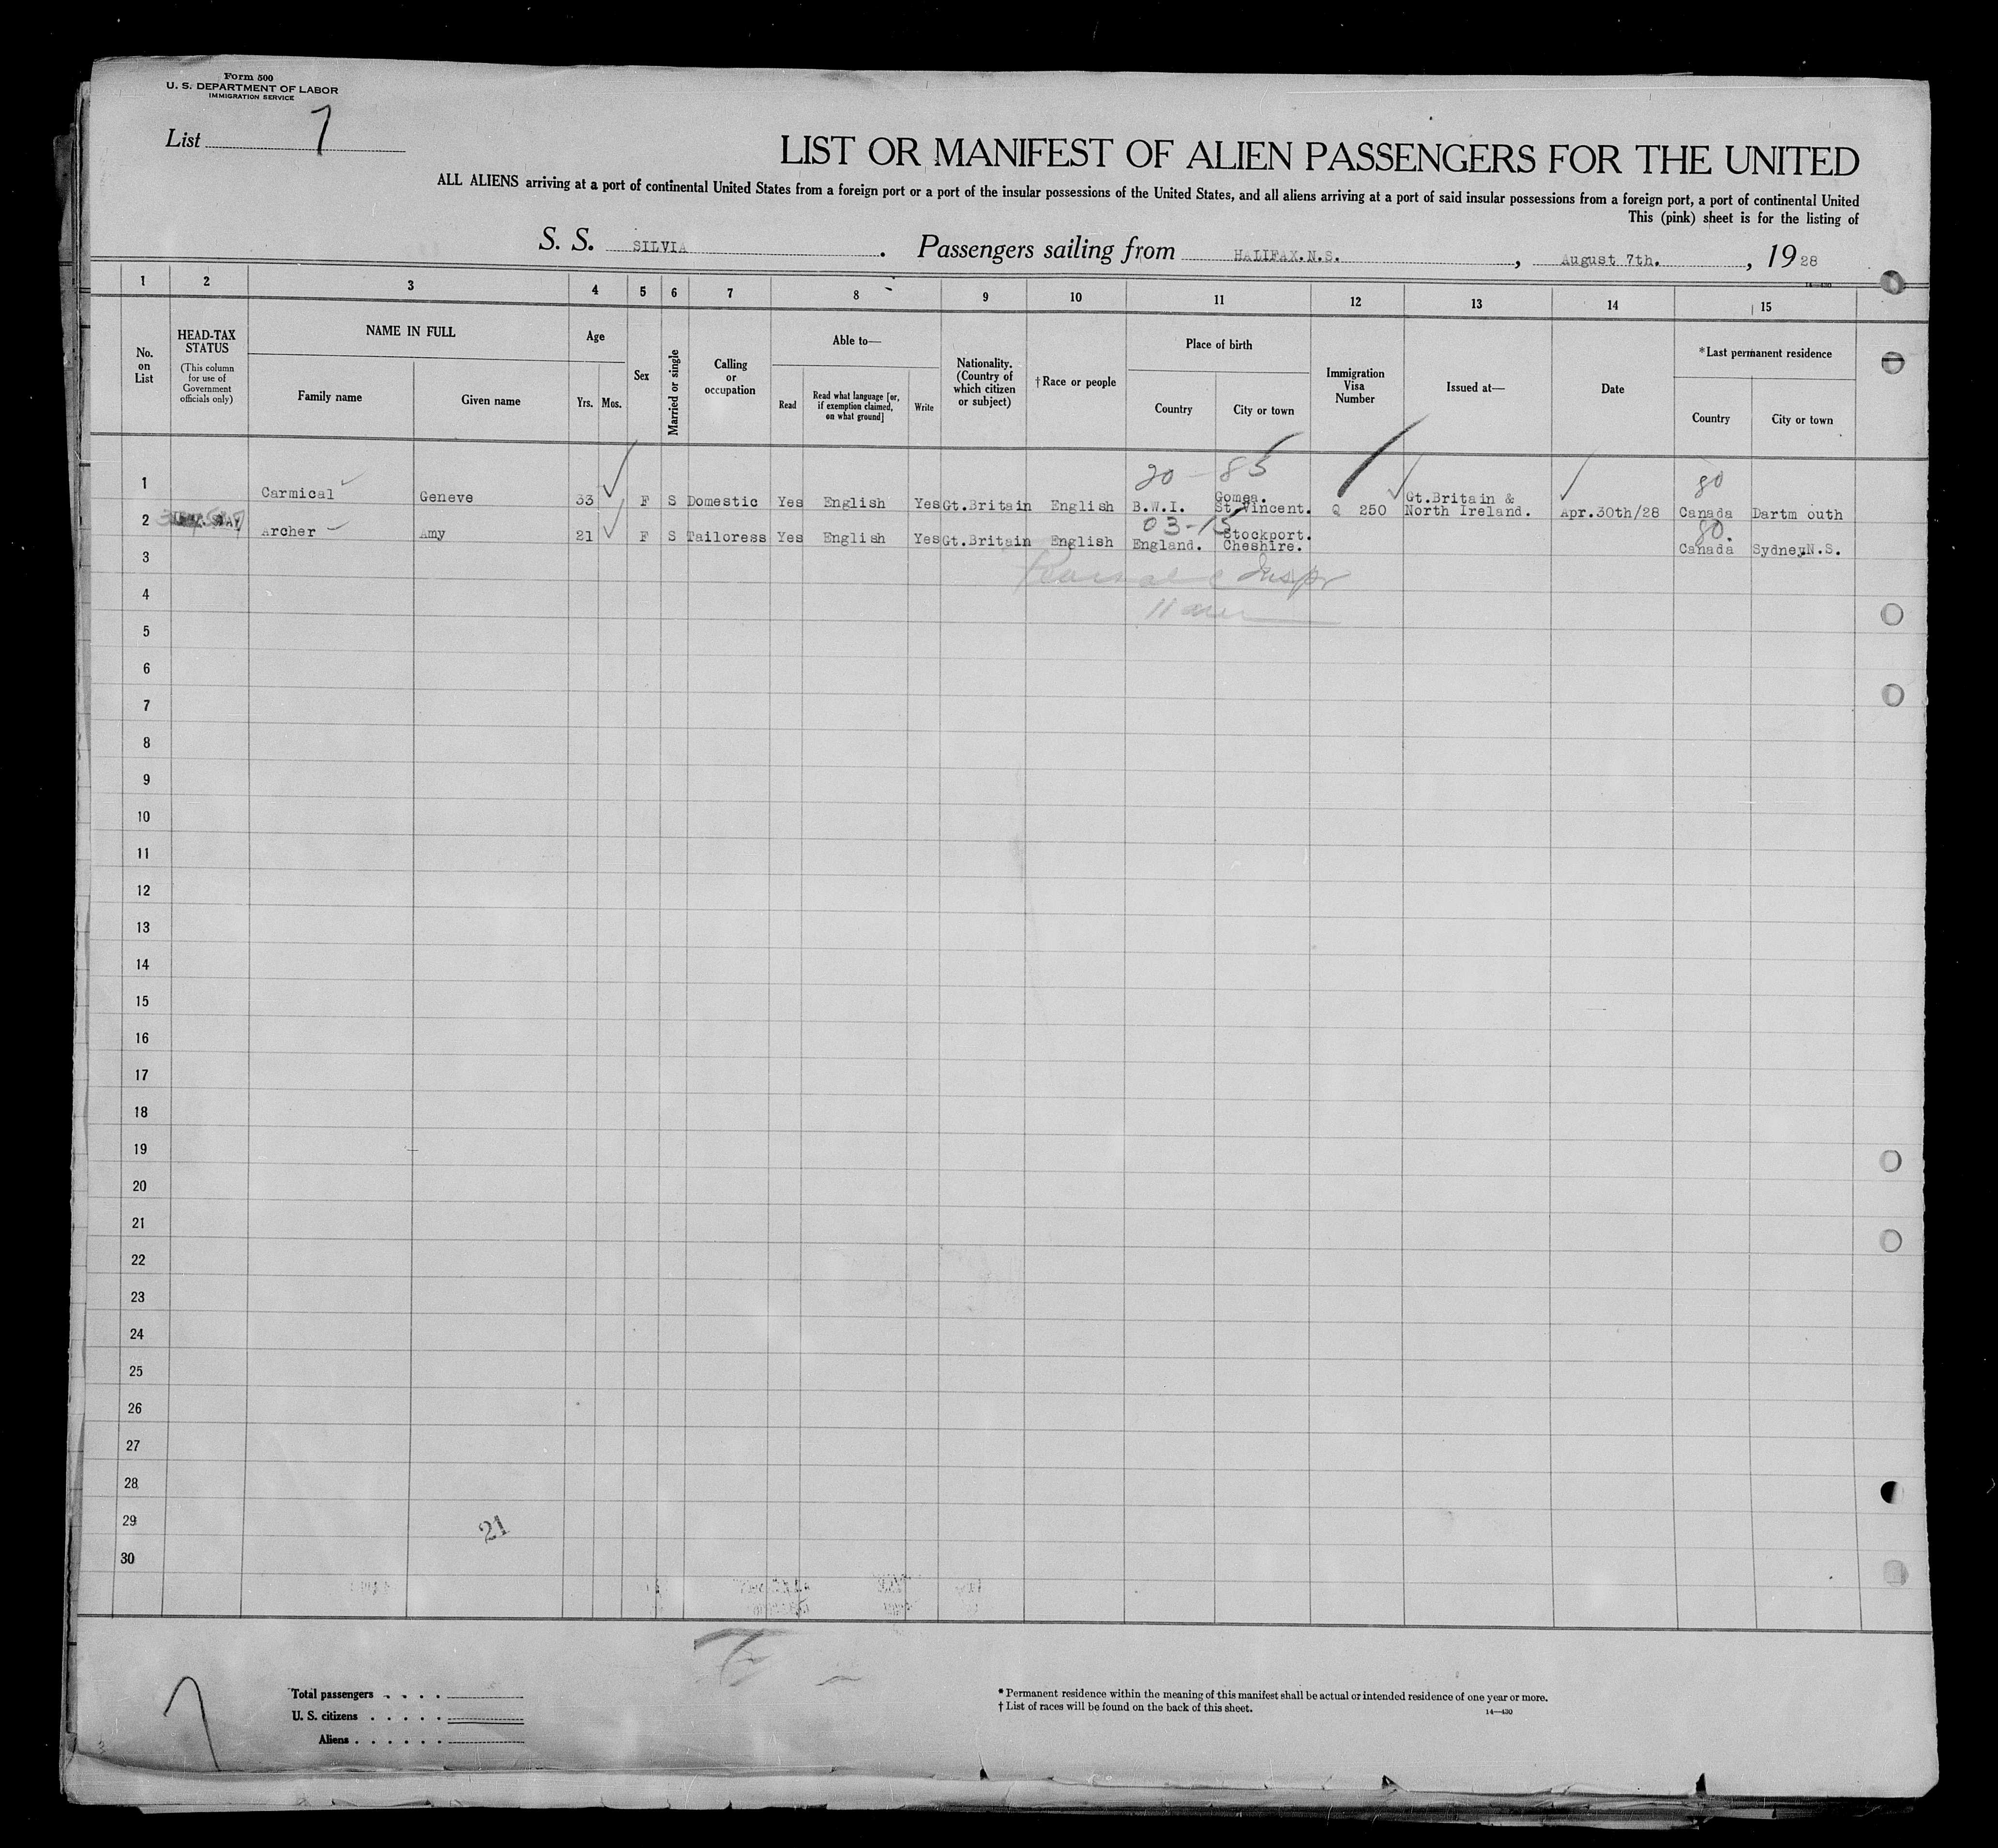 Form 500
U. S. DEPARTMENT OF LABOR
IMMIGRATION SERVICE
List 7
LIST OR MANIFEST OF ALIEN PASSENGERS FOR THE UNITED
ALL ALIENS arriving at a port of continental United States from a foreign port or a port of the insular possessions of the United States, and all aliens arriving at a port of said insular possessions from a foreign port, a port of continental United
This (pink) sheet is for the listing of
S. S. SILVIA. Passengers sailing from HALIFAX.N.S., August 7th., 1928
1 2 3 4 5 6 7 8 9 10 11 12 13 14 15
No. on List
HEAD-TAX STATUS
(This column for use of Government officials only)
NAME IN FULL
Family name
Given name
Age
Yrs. Mos.
Sex
Married or single
Calling or occupation
Able to—
Read
Read what language [or, if exemption claimed, on what ground]
Write
Nationality. (Country of which citizen or subject)
† Race or people
Place of birth
Country
City or town
Immigration Visa Number
Issued at—
Date
*Last permanent residence
Country
City or town
20 - 85 80
1 Carmical Geneve 33 F S Domestic Yes English Yes Gt.Britain English B.W.I. Gomea. St.Vincent. Q 250 Gt.Britain & North Ireland. Apr.30th/28 Canada Dartm outh
03-15 80.
2 Archer Amy 21 F S Tailoress Yes English Yes Gt.Britain English England. Stockport. Cheshire. Canada Sydney,N.S.
3
4
5
6
7
8
9
10
11
12
13
14
15
16
17
18
19
20
21
22
23
24
25
26
27
28
29
21
30
7
Total passengers
U. S. citizens
Aliens
* Permanent residence within the meaning of this manifest shall be actual or intended residence of one year or more.
† List of races will be found on the back of this sheet.
14—430